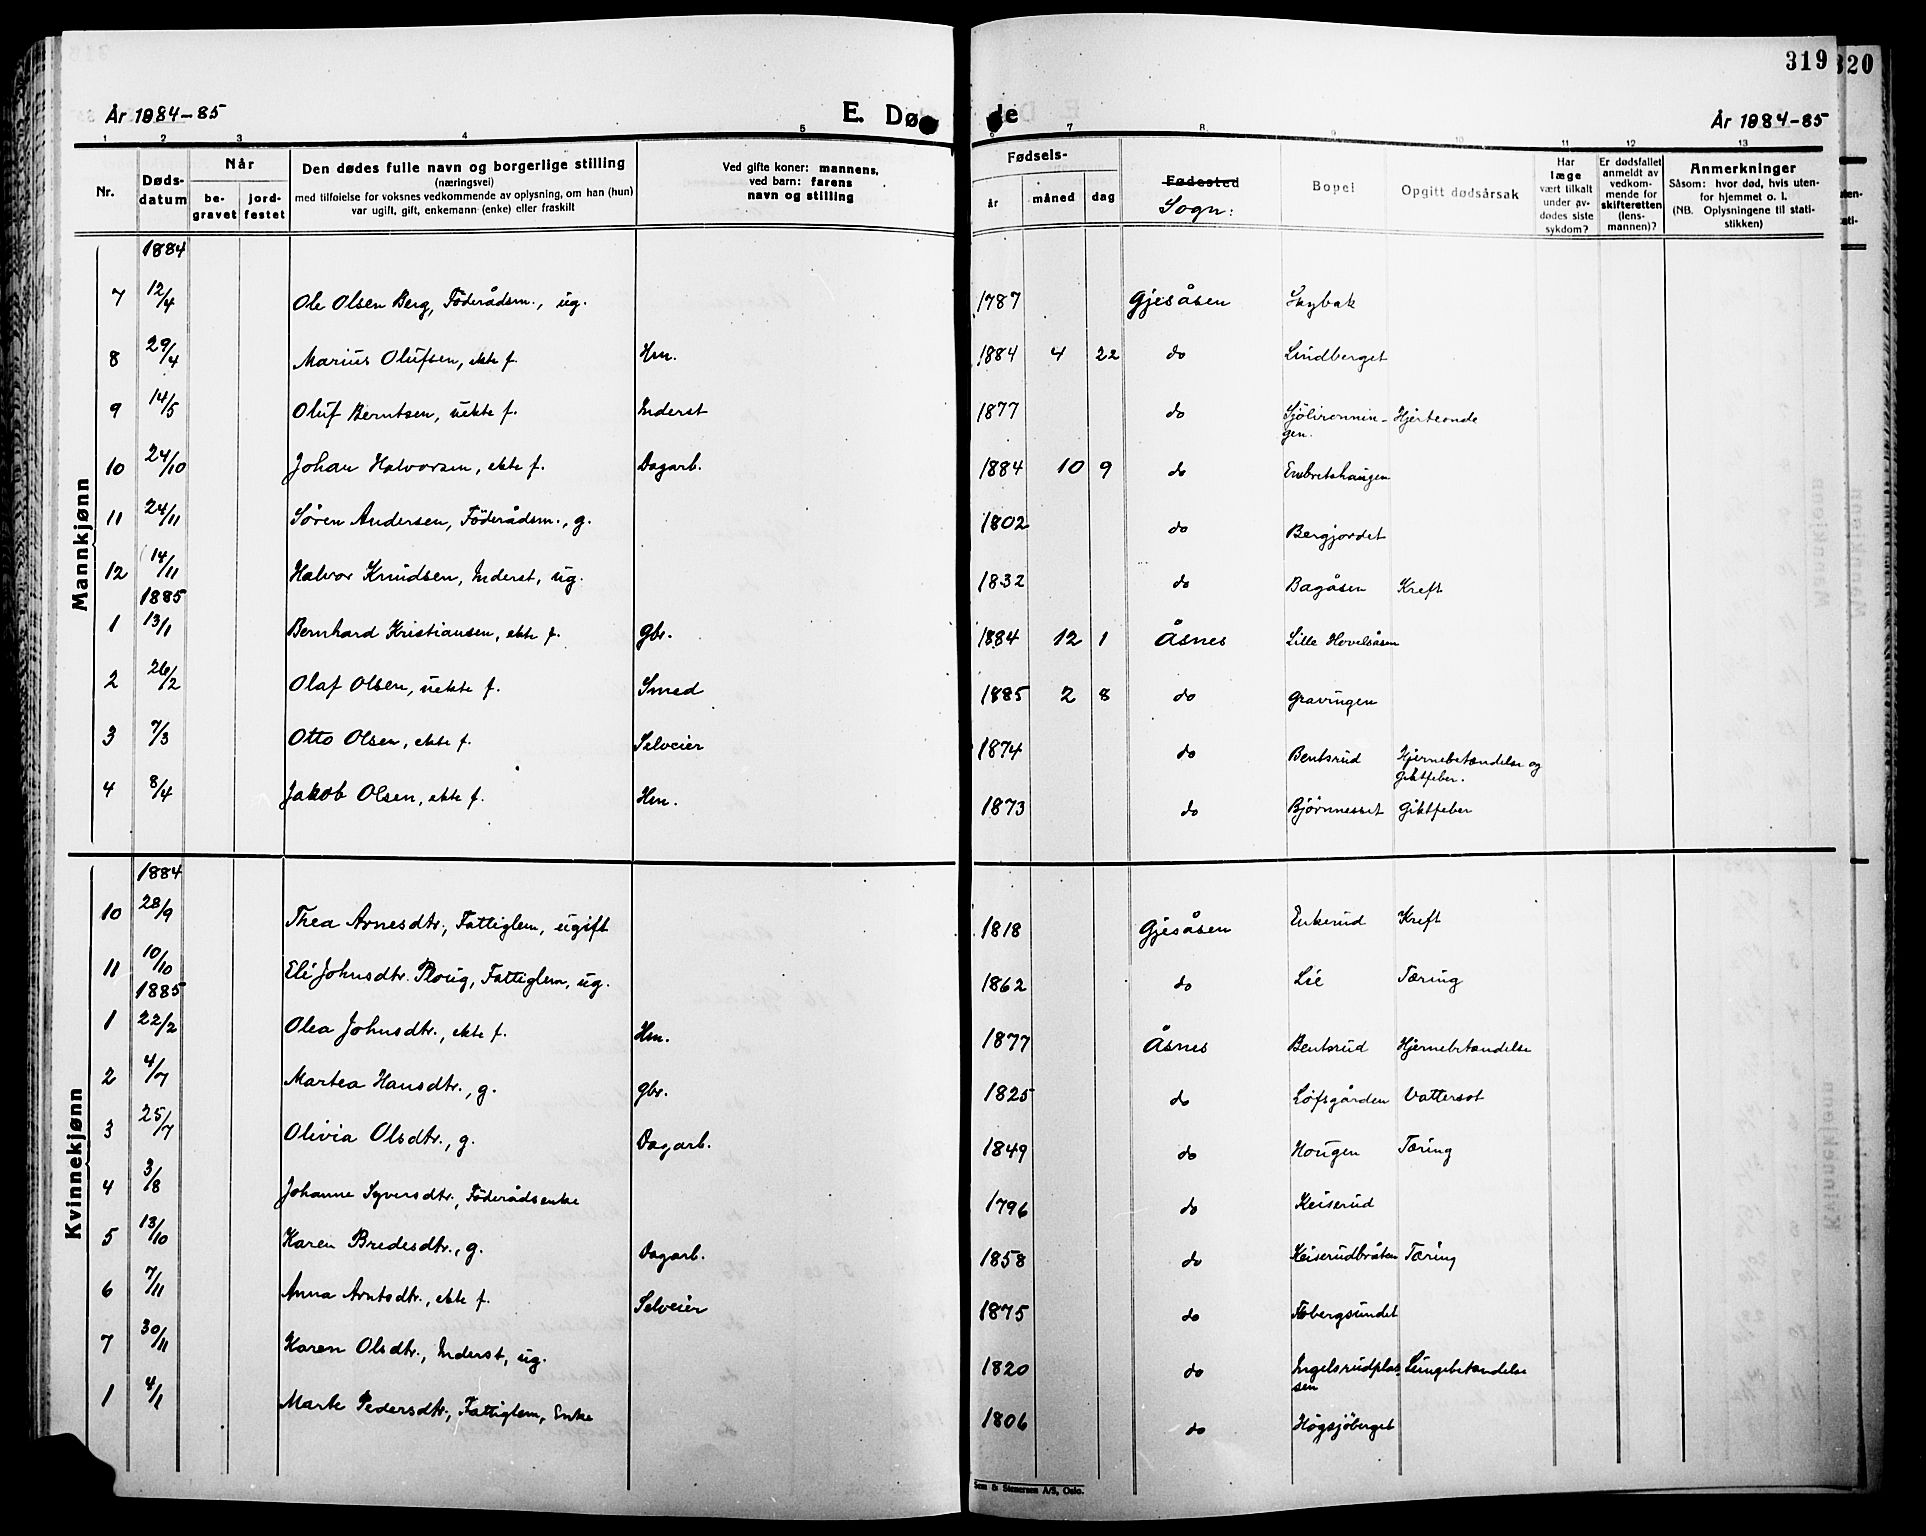 319
320
År 1884-85
E. Dø de
År 1884-85
1 2 3 4 5 6 7 8 9 10 11 12 13
Nr. Døds-datum Når be-gravet jord-festet
Den dødes fulle navn og borgerlige stilling
(næringsvei)
med tilføielse for voksnes vedkommende av oplysning, om han (hun)
var ugift, gift, enkemann (enke) eller fraskilt
Ved gifte koner: mannens,
ved barn: farens
navn og stilling
Fødsels-
år måned dag
Fødested
Sogn:
Bopel
Opgitt dødsårsak
Har læge vært tilkalt under av-dødes siste sykdom?
Er dødsfallet anmeldt av vedkom-mende for skifteretten (lens-mannen)?
Anmerkninger
Såsom: hvor død, hvis uten-
for hjemmet o. l.
(NB. Oplysningene til stati-
stikken)
Mannkjønn
1884
7 12/4 Ole Olsen Berg, Föderådsm., ug. 1787 Gjesåsen Skybak
8 29/4 Marius Olufsen, ekte f. Hm. 1884 4 22 do Lindberget
9 14/5 Oluf Berntsen, uekte f. Inderst 1877 do Sjölirønnin-
gen. Hjerteonde
10 24/10 Johan Halvorsen, ekte f. Dagarb. 1884 10 9 do Embretshaugen
11 24/11 Søren Andersen, Föderådsm., g. 1802 do Bergjordet
12 14/11 Halvor Knudsen, Inderst, ug. 1832 do Bagåsen Kreft
1885
1 13/1 Bernhard Kristiansen, ekte f. Gbr. 1884 12 1 Åsnes Lille Hovelsåsen
2 26/2 Olaf Olsen, uekte f. Smed 1885 2 8 do Gravingen
3 7/3 Otto Olsen, ekte f. Selveier 1874 do Bentsrud Hjernebetændelse og
Giktfeber.
4 8/4 Jakob Olsen, ekte f. Hm. 1873 do Bjørnnesset Giktfeber
Kvinnekjønn
1884
10 28/9 Thea Arnesdtr., Fattiglem, ugift 1818 Gjesåsen Enkerud Kreft
11 10/10 Eli Johnsdtr. Ploug, Fattiglem, ug. 1862 do Lie Tæring
1885
1 22/2 Olea Johnsdtr., ekte f. Hm. 1877 Åsnes Bentsrud Hjernebetændelse
2 4/7 Martea Hansdtr., g. Gbr. 1825 do Løfsgården Vattersot
3 25/7 Olivia Olsdtr., g. Dagarb. 1849 do Hougen Tæring
4 3/8 Johanne Syversdtr., Föderådsenke 1796 do Keiserud
5 13/10 Karen Bredesdtr., g. Dagarb. 1858 do Keiserudbråten Tæring
6 7/11 Anna Arntsdtr., ekte f. Selveier 1875 do Fobergsundet
7 30/11 Karen Olsdtr., Inderst, ug. 1820 do Ingelsrudplas-
sen Lungebetændelse
1 4/1 Marte Pedersdtr., Fattiglem, Enke 1806 do Högsjöberget
Sem & Stenersen A/S, Oslo.